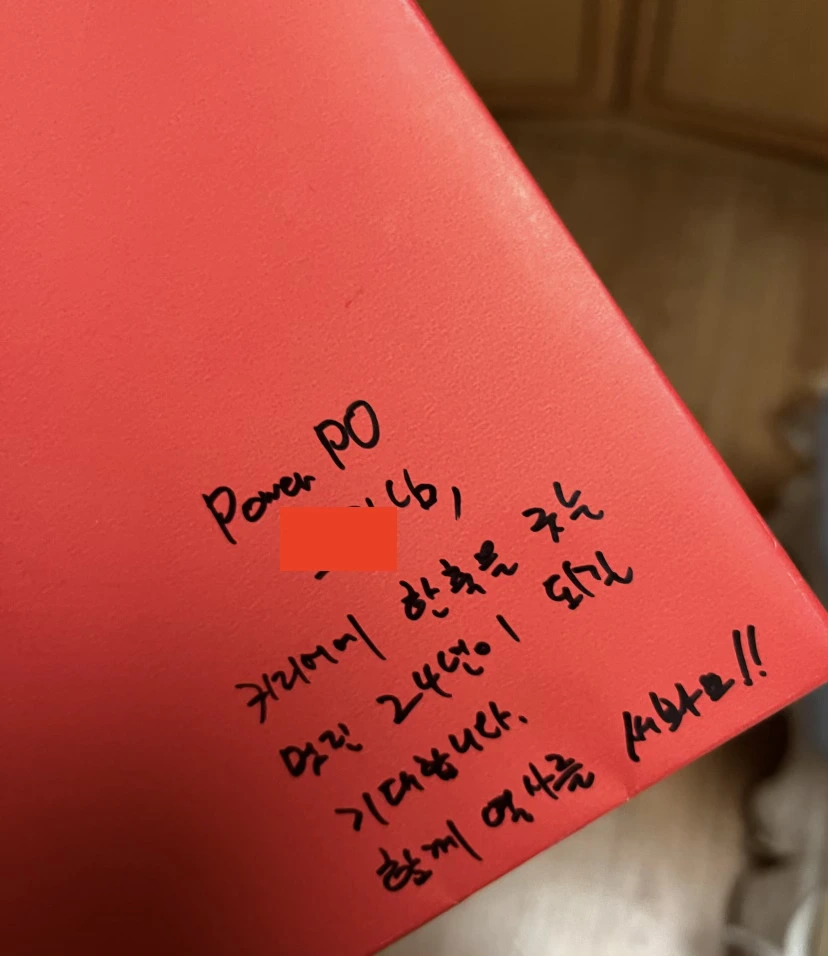 Power PO
님,
커리어에 한 획을 긋는
멋진 24년이 되길
기대합니다.
함께 역사를 써봐요!!